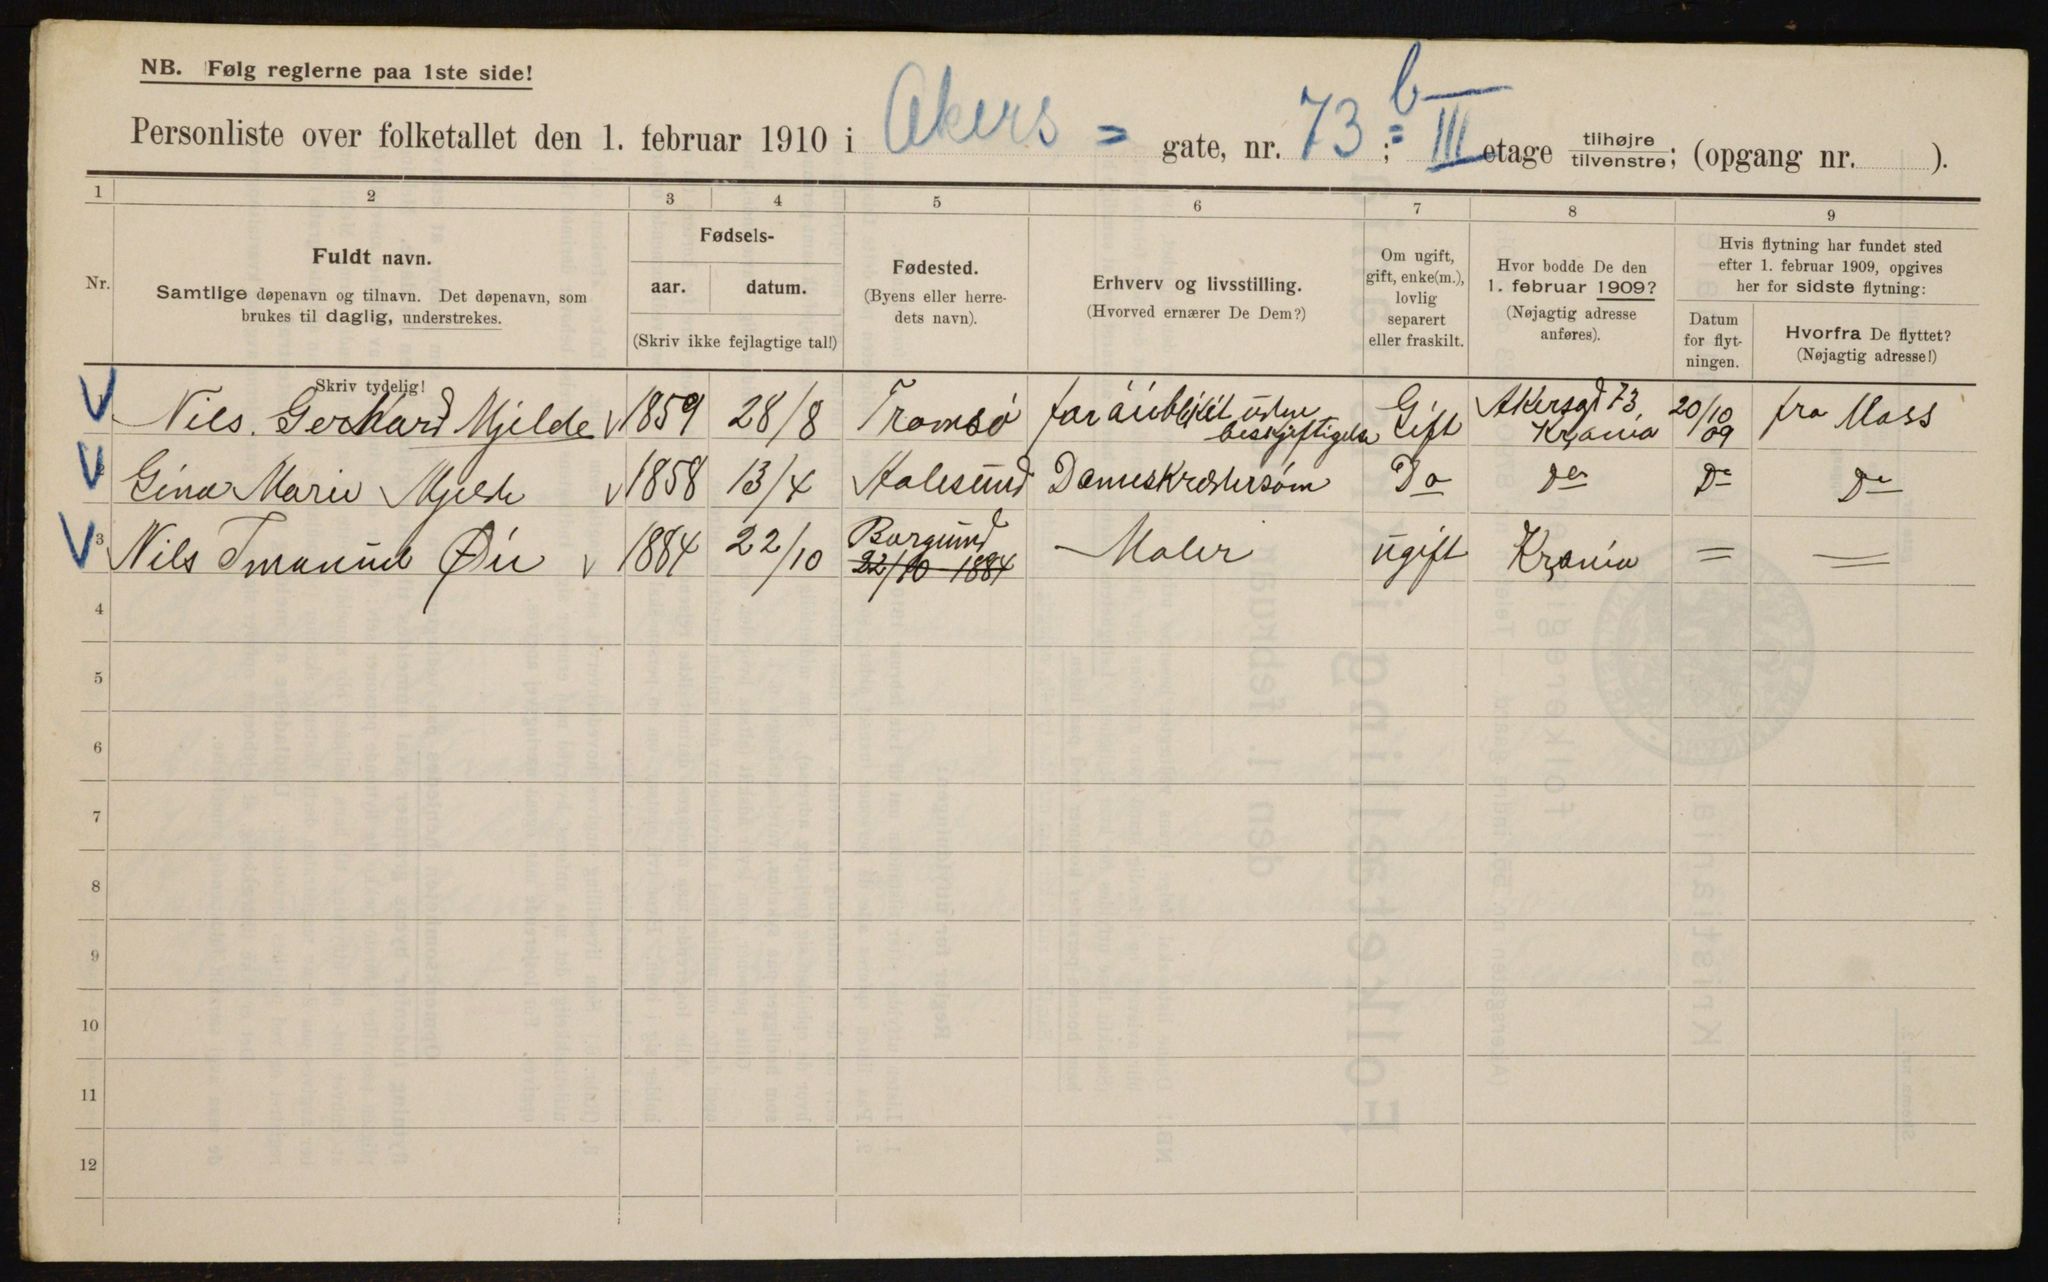 NB. Følg reglerne paa 1ste side!
Personliste over folketallet den 1. februar 1910 i Akers = gate, nr. 73 b; III etage tilhøjre tilvenstre; (opgang nr. ).
1 2 3 4 5 6 7 8 9
Nr.
Fuldt navn.
Samtlige døpenavn og tilnavn. Det døpenavn, som
brukes til daglig, understrekes.
Skriv tydelig!
Fødsels-
aar. datum.
(Skriv ikke fejlagtige tal!)
Fødested.
(Byens eller herre-
dets navn).
Erhverv og livsstilling.
(Hvorved ernærer De Dem?)
Om ugift,
gift, enke(m.),
lovlig
separert
eller fraskilt.
Hvor bodde De den
1. februar 1909?
(Nøjagtig adresse
anføres).
Hvis flytning har fundet sted
efter 1. februar 1909, opgives
her for sidste flytning:
Datum
for flyt-
ningen.
Hvorfra De flyttet?
(Nøjagtig adresse!)
V Nils. Gerhard Mjelde v 1859 28/8 Tromsö for öieblikket uden beskjeftigelse Gift Akersgd 73, Krania 20/10 09 fra Moss
V Gina Marie Mjelde v 1858 13/4 Aalesund Dameskrædersøm Do Do Do Do
V 3 Nils Imanuel Øie v 1884 22/10 Borgund 22/10 1884 Maler ugift Krania = =
4
5
6
7
8
9
10
11
12